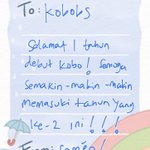 To: Kobobs
Selamat 1 tahun
debut kobo! Semoga
Semakin-makin-makin
memasuki tahun yang
ke-2 ini!!!
From: